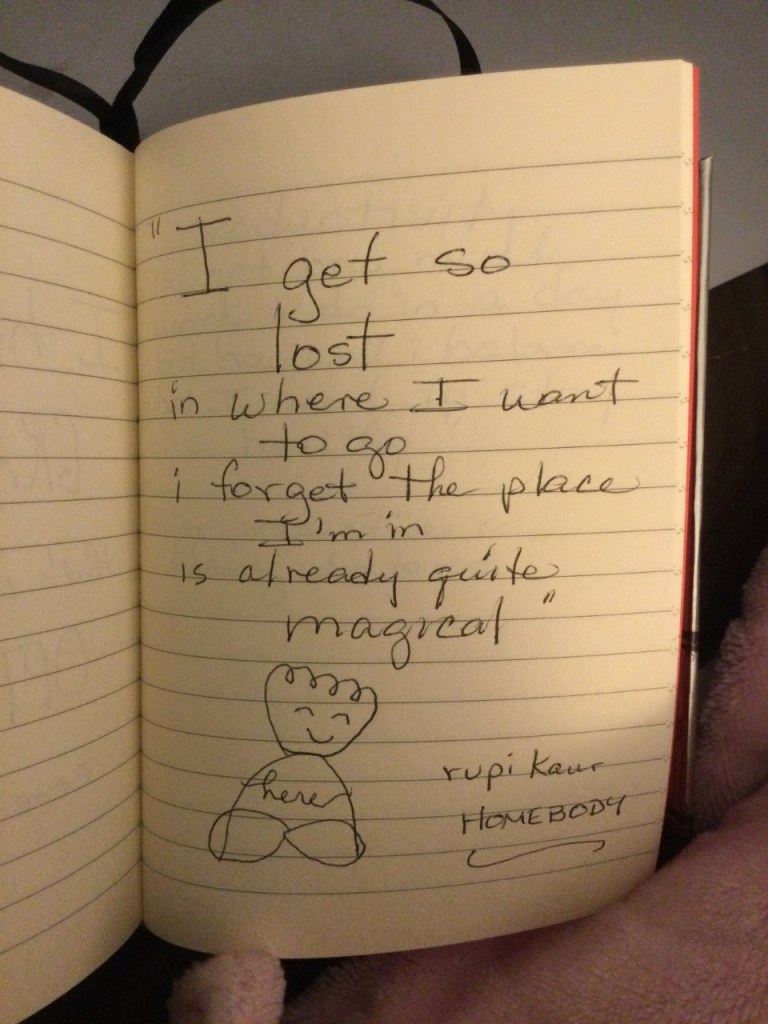 "I get so
lost
in where I want
to go
i forget the place
I'm in
is already quite
magical"
here
rupi kaur
HOMEBODY